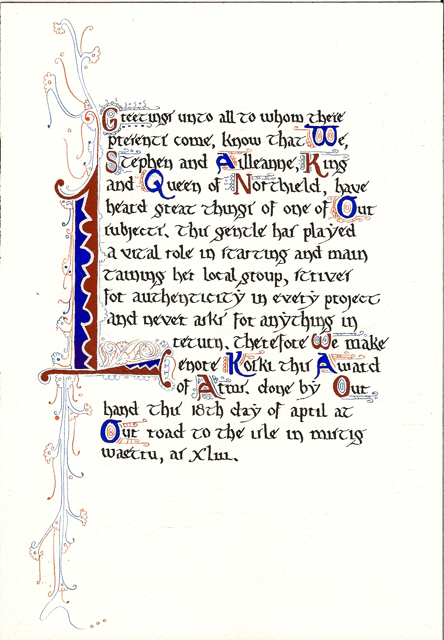 Greetings unto all to whom these
presents come, know that We,
Stephen and Ailleanne, King
and Queen of Northield, have
heard great things of one of Our
subjects. this gentle has played
a vital role in starting and main
taining her local group, strives
for authenticity in every project
and never asks for anything in
return, therefore We make
Lenore Koski this Award
of Arms. done by Our
hand this 18th day of april at
Our road to the isle in mistig
as Xliii.